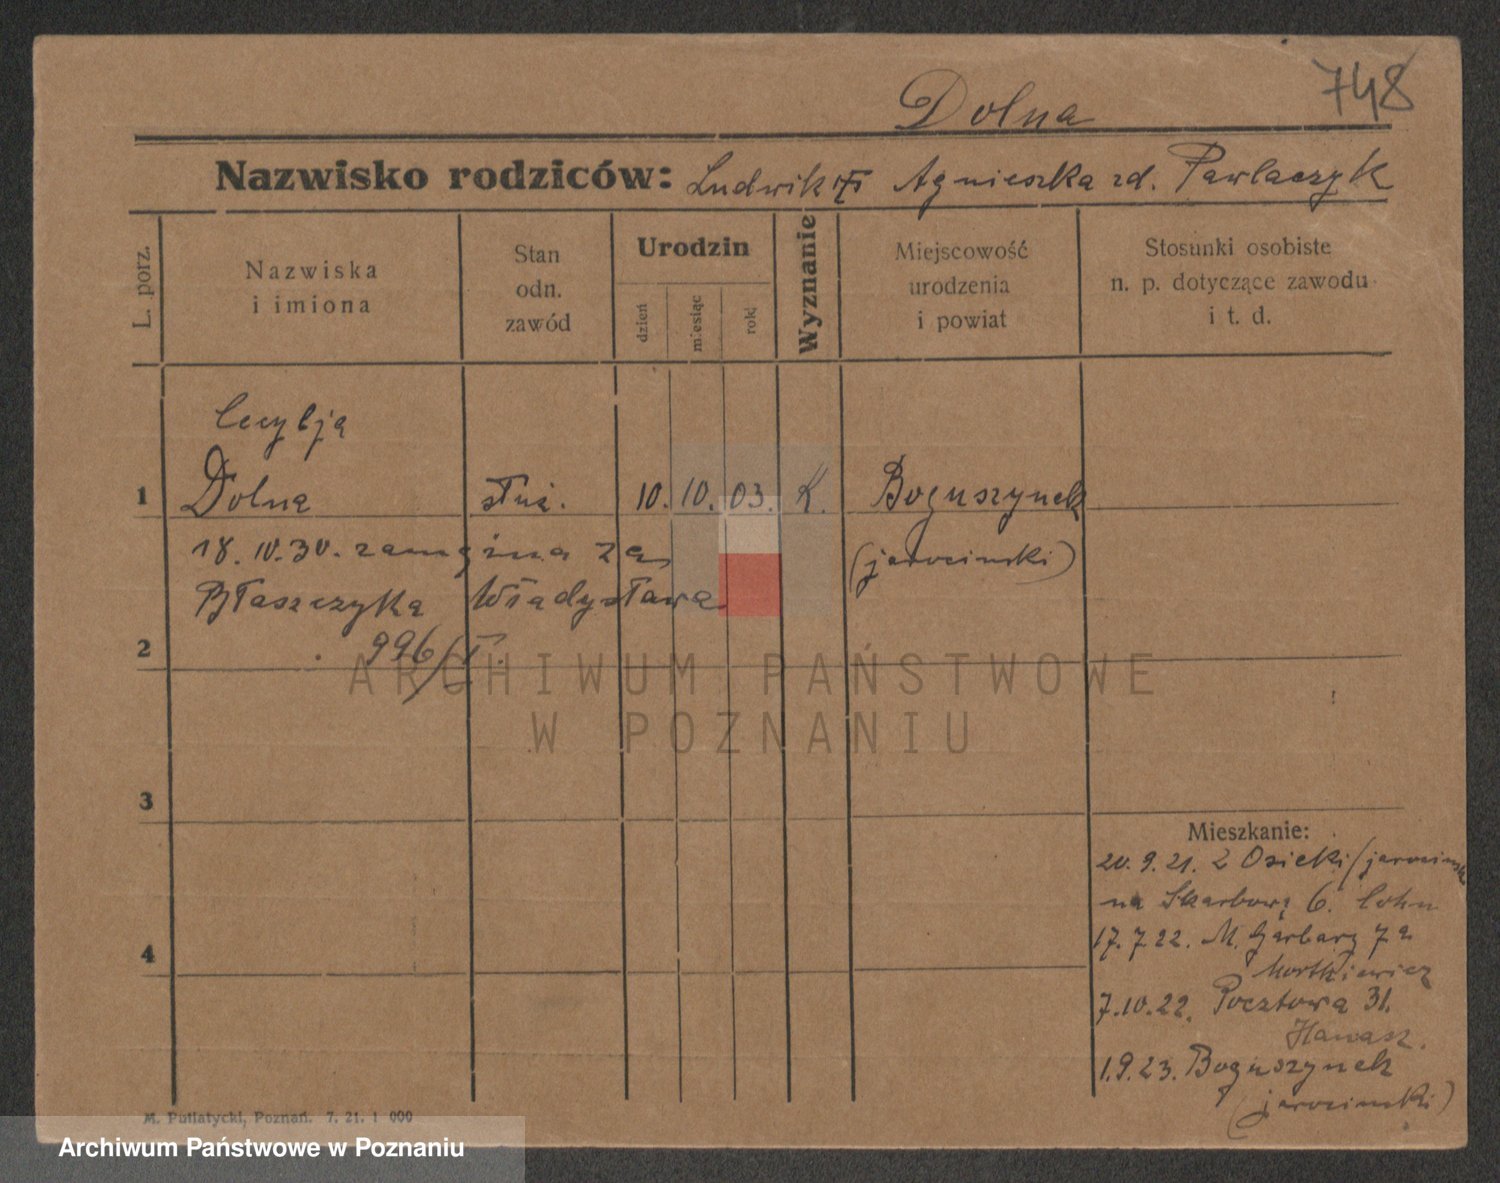 748
Dolna
Nazwisko rodziców: Ludwik Agnieszka zd. Pawlaczyk
L. porz.
Nazwiska
i imiona
Stan
odn.
zawód
Urodzin
dzień
miesiąc
rok
Wyznanie
Miejscowość
urodzenia
i powiat
Stosunki osobiste
n. p. dotyczące zawodu
i t. d.
Cecylją
1 Dolna służ. 10. 10. 03. K. Boguszynek
(jarocinski)
18. IV. 30. zamężna za
Błaszczyka Władysława
2 996/I.
ARCHIWUM PAŃSTWOWE
W POZNANIU
3
4
Mieszkanie:
20. 9. 21. z Osieki (jarocinski
na Skarbową 6. Cohn
17. 7. 22. M. Garbary 7a
7. 10. 22. Pocztowa 31.
1. 9. 23. Boguszynek
(jarocinski)
M. Putiatycki, Poznań. 7. 21. 1 000
Archiwum Państwowe w Poznaniu